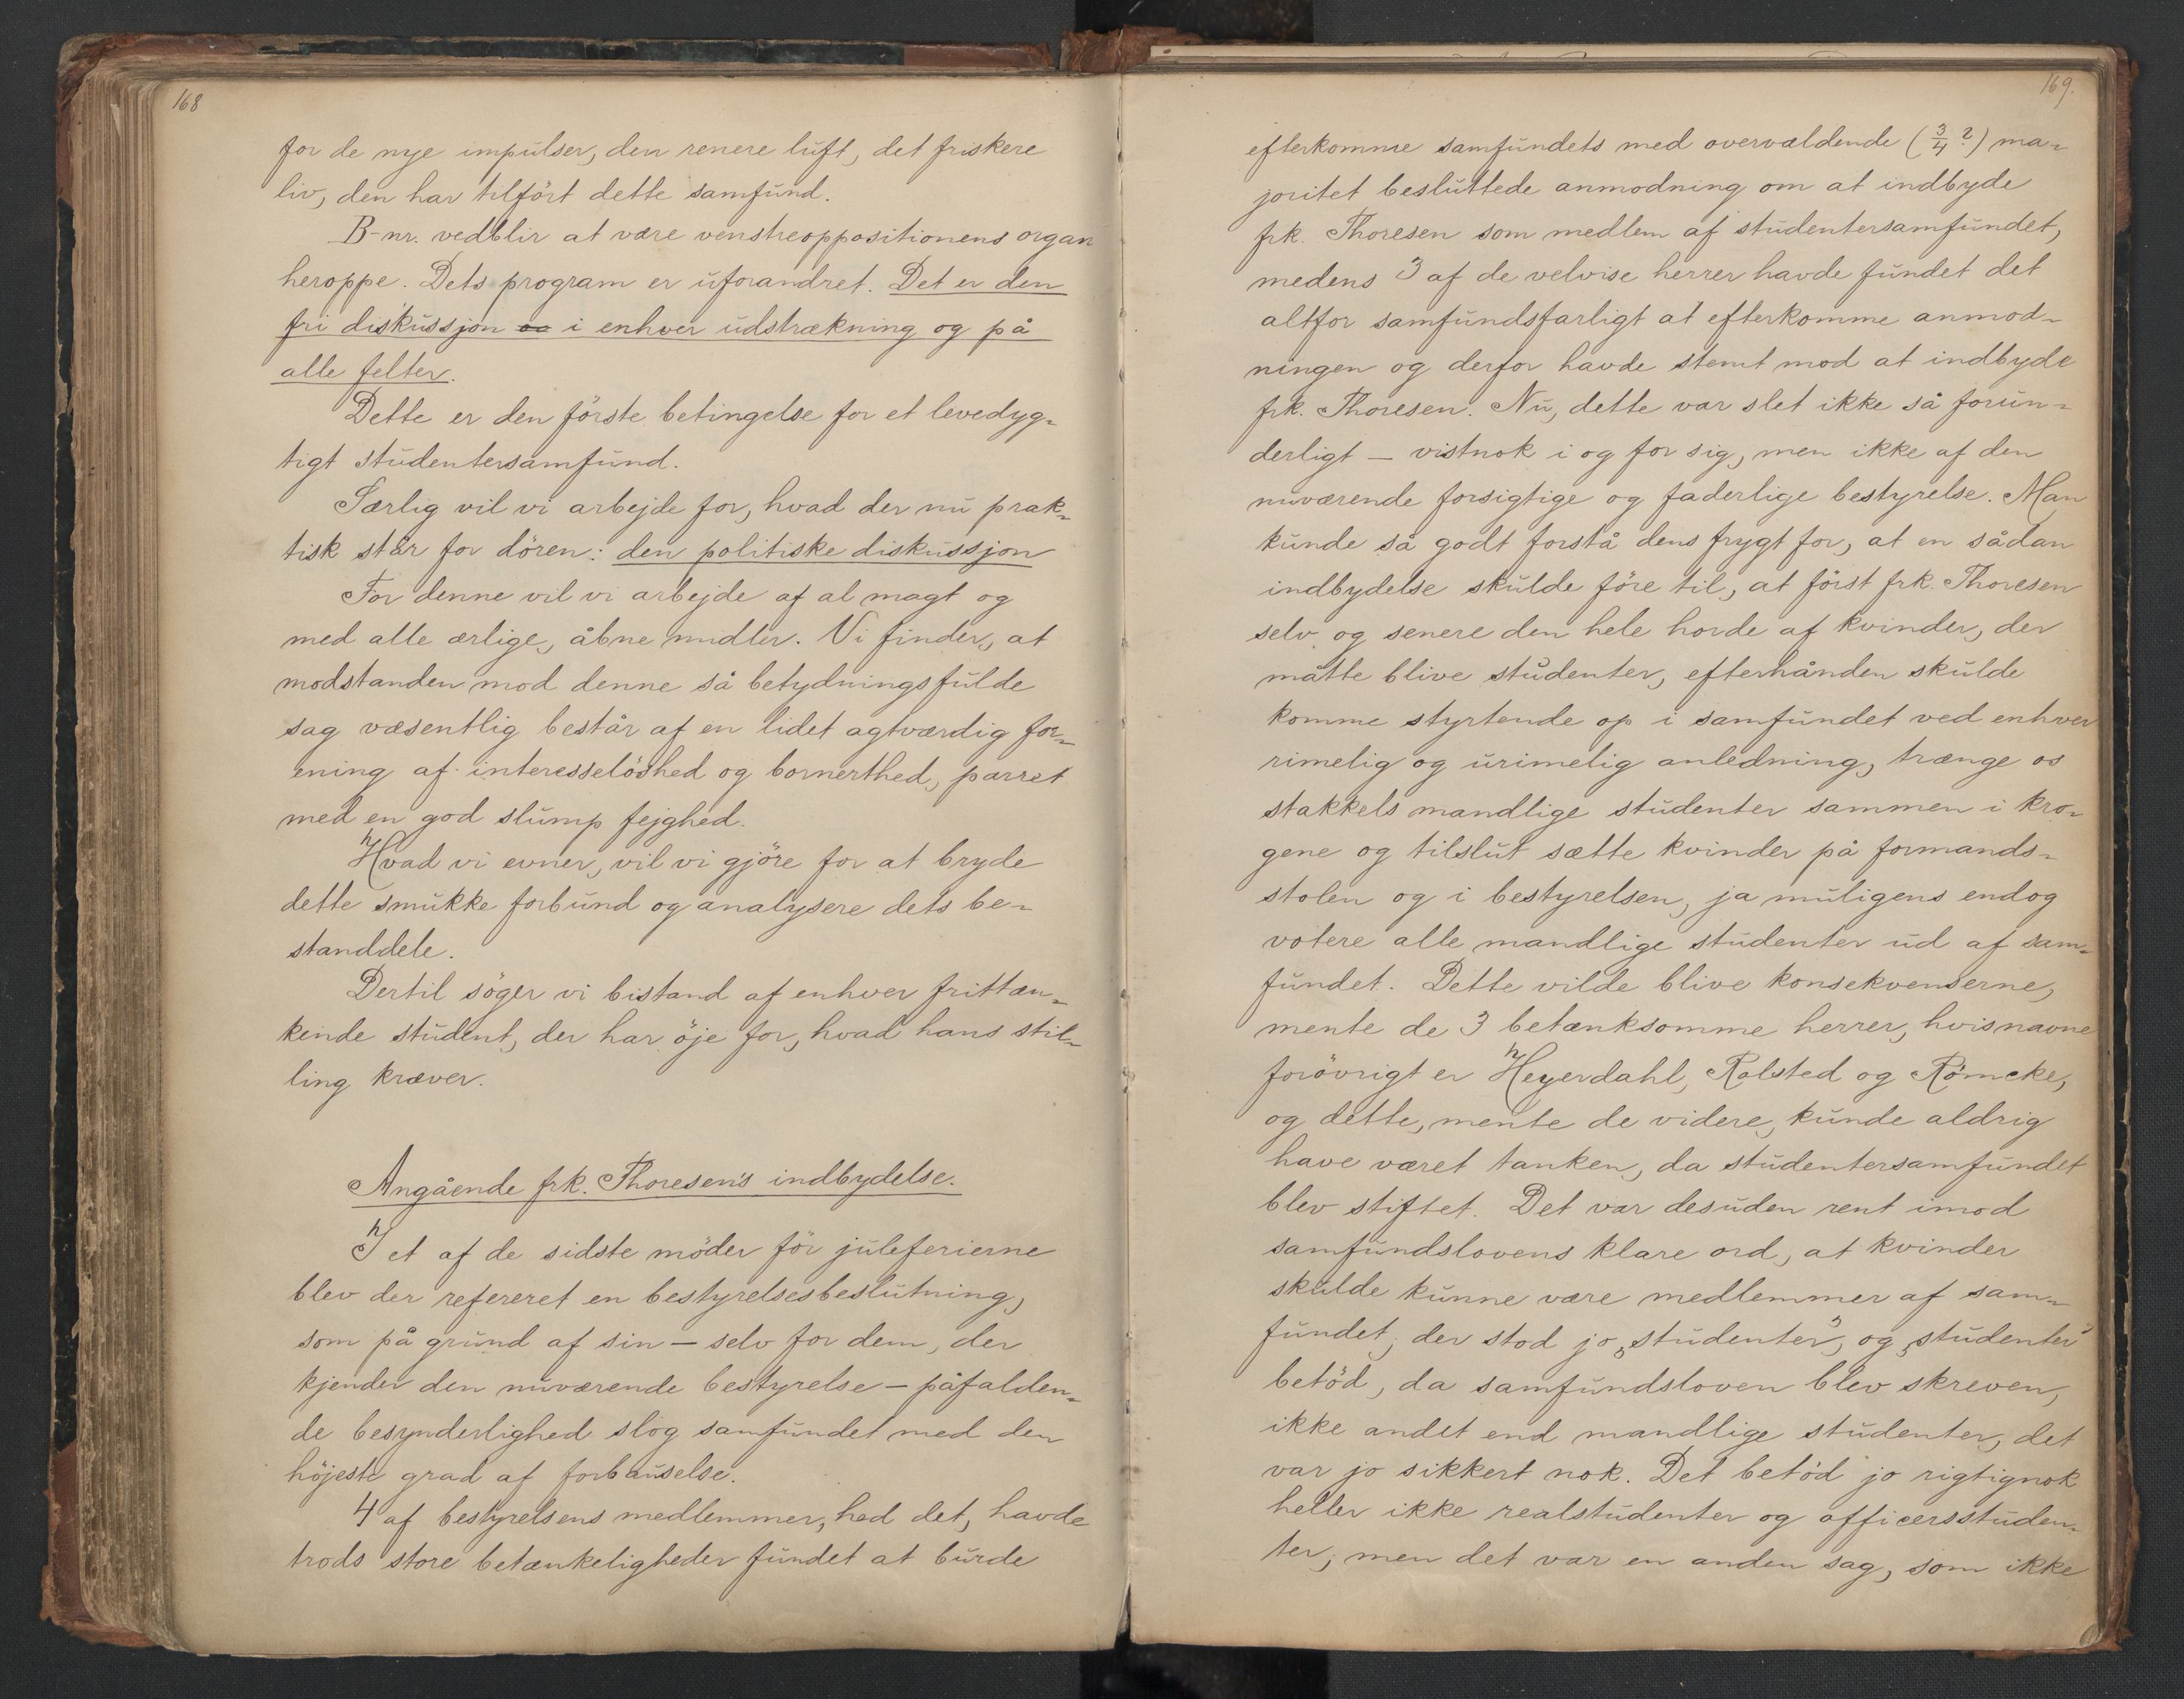 168
for de nye impulser, den renere luft, det friskere
liv, den har tilfört dette samfund.
B-nr. vedblir at være venstreoppositionens organ
heroppe. Dets program er uforandret. Det er den
fri diskussjon oo i enhver udstrækning og på
alle felter.
Dette er den förste betingelse for et levedyg-
tigt studentersamfund.
Særlig vil vi arbejde for, hvad der nu prak-
tisk står for dören: den politiske diskussjon
For denne vil vi arbejde af al magt og
med alle ærlige, åbne midler. Vi finder, at
modstanden mod denne så betydningsfulde
sag væsentlig består af en lidet agtværdig for-
ening af interesselöshed og bornerthed, parret
med en god slump fejghed.
Hvad vi evner, vil vi gjöre for at bryde
dette smukke forbund og analysere dets be-
standdele.
Dertil söger vi bistand af enhver frittæn-
kende student, der har öje for, hvad hans stil-
ling kræver.
Angående frk. Thoresen's indbydelse.
I et af de sidste möder för juleferierne
blev der refereret en bestyrelsesbeslutning,
som på grund af sin – selv for dem, der
kjender den nuværende bestyrelse – påfalden-
de besynderlighed slog samfundet med den
höjeste grad af forbauselse.
4 af bestyrelsens medlemmer, hed det, havde
trods store betænkeligheder fundet at burde
169.
efterkomme samfundets med overvældende (3/4 ?) ma-
joritet besluttede anmodning om at indbyde
frk. Thoresen som medlem af studentersamfundet,
medens 3 af de velvise herrer havde fundet det
altfor samfundsfarligt at efterkomme anmod-
ningen og derfor havde stemt mod at indbyde
frk. Thoresen. Nu, dette var slet ikke så forun-
derligt – vistnok i og for sig, men ikke af den
nuværende forsigtige og faderlige bestyrelse. Man
kunde så godt forstå dens frygt for, at en sådan
indbydelse skulde före til, at först frk. Thoresen
selv og senere den hele horde af kvinder, der
måtte blive studenter, efterhånden skulde
komme styrtende op i samfundet ved enhver
rimelig og urimelig anledning, trænge os
stakkels mandlige studenter sammen i kro-
gene og tilslut sætte kvinder på formands-
stolen og i bestyrelsen, ja muligens endog
votere alle mandlige studenter ud af sam-
fundet. Dette vilde blive konsekvenserne,
mente de 3 betænksomme herrer, hvis navne
forövrigt er Heyerdahl, Rolsted og Römcke,
og dette, mente de videre, kunde aldrig
have været tanken, da studentersamfundet
blev stiftet. Det var desuden rent imod
samfundslovens klare ord, at kvinder
skulde kunne være medlemmer af sam-
fundet, der stod jo „studenter", og „studenter"
betöd, da samfundsloven blev skreven,
ikke andet end mandlige studenter, det
var jo sikkert nok. Det betöd jo rigtignok
heller ikke realstudenter og officersstuden-
ter; men det var en anden sag, som ikke